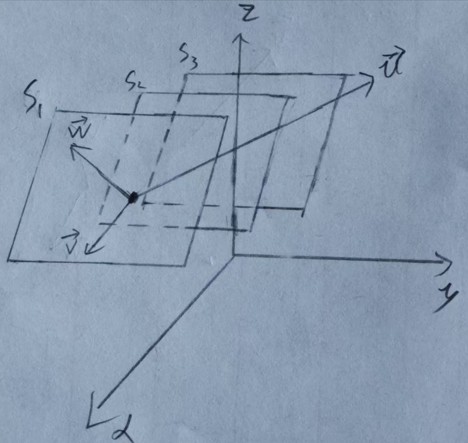 z
S₃
S₂
S₁
u⃗
w⃗
v⃗
y
x